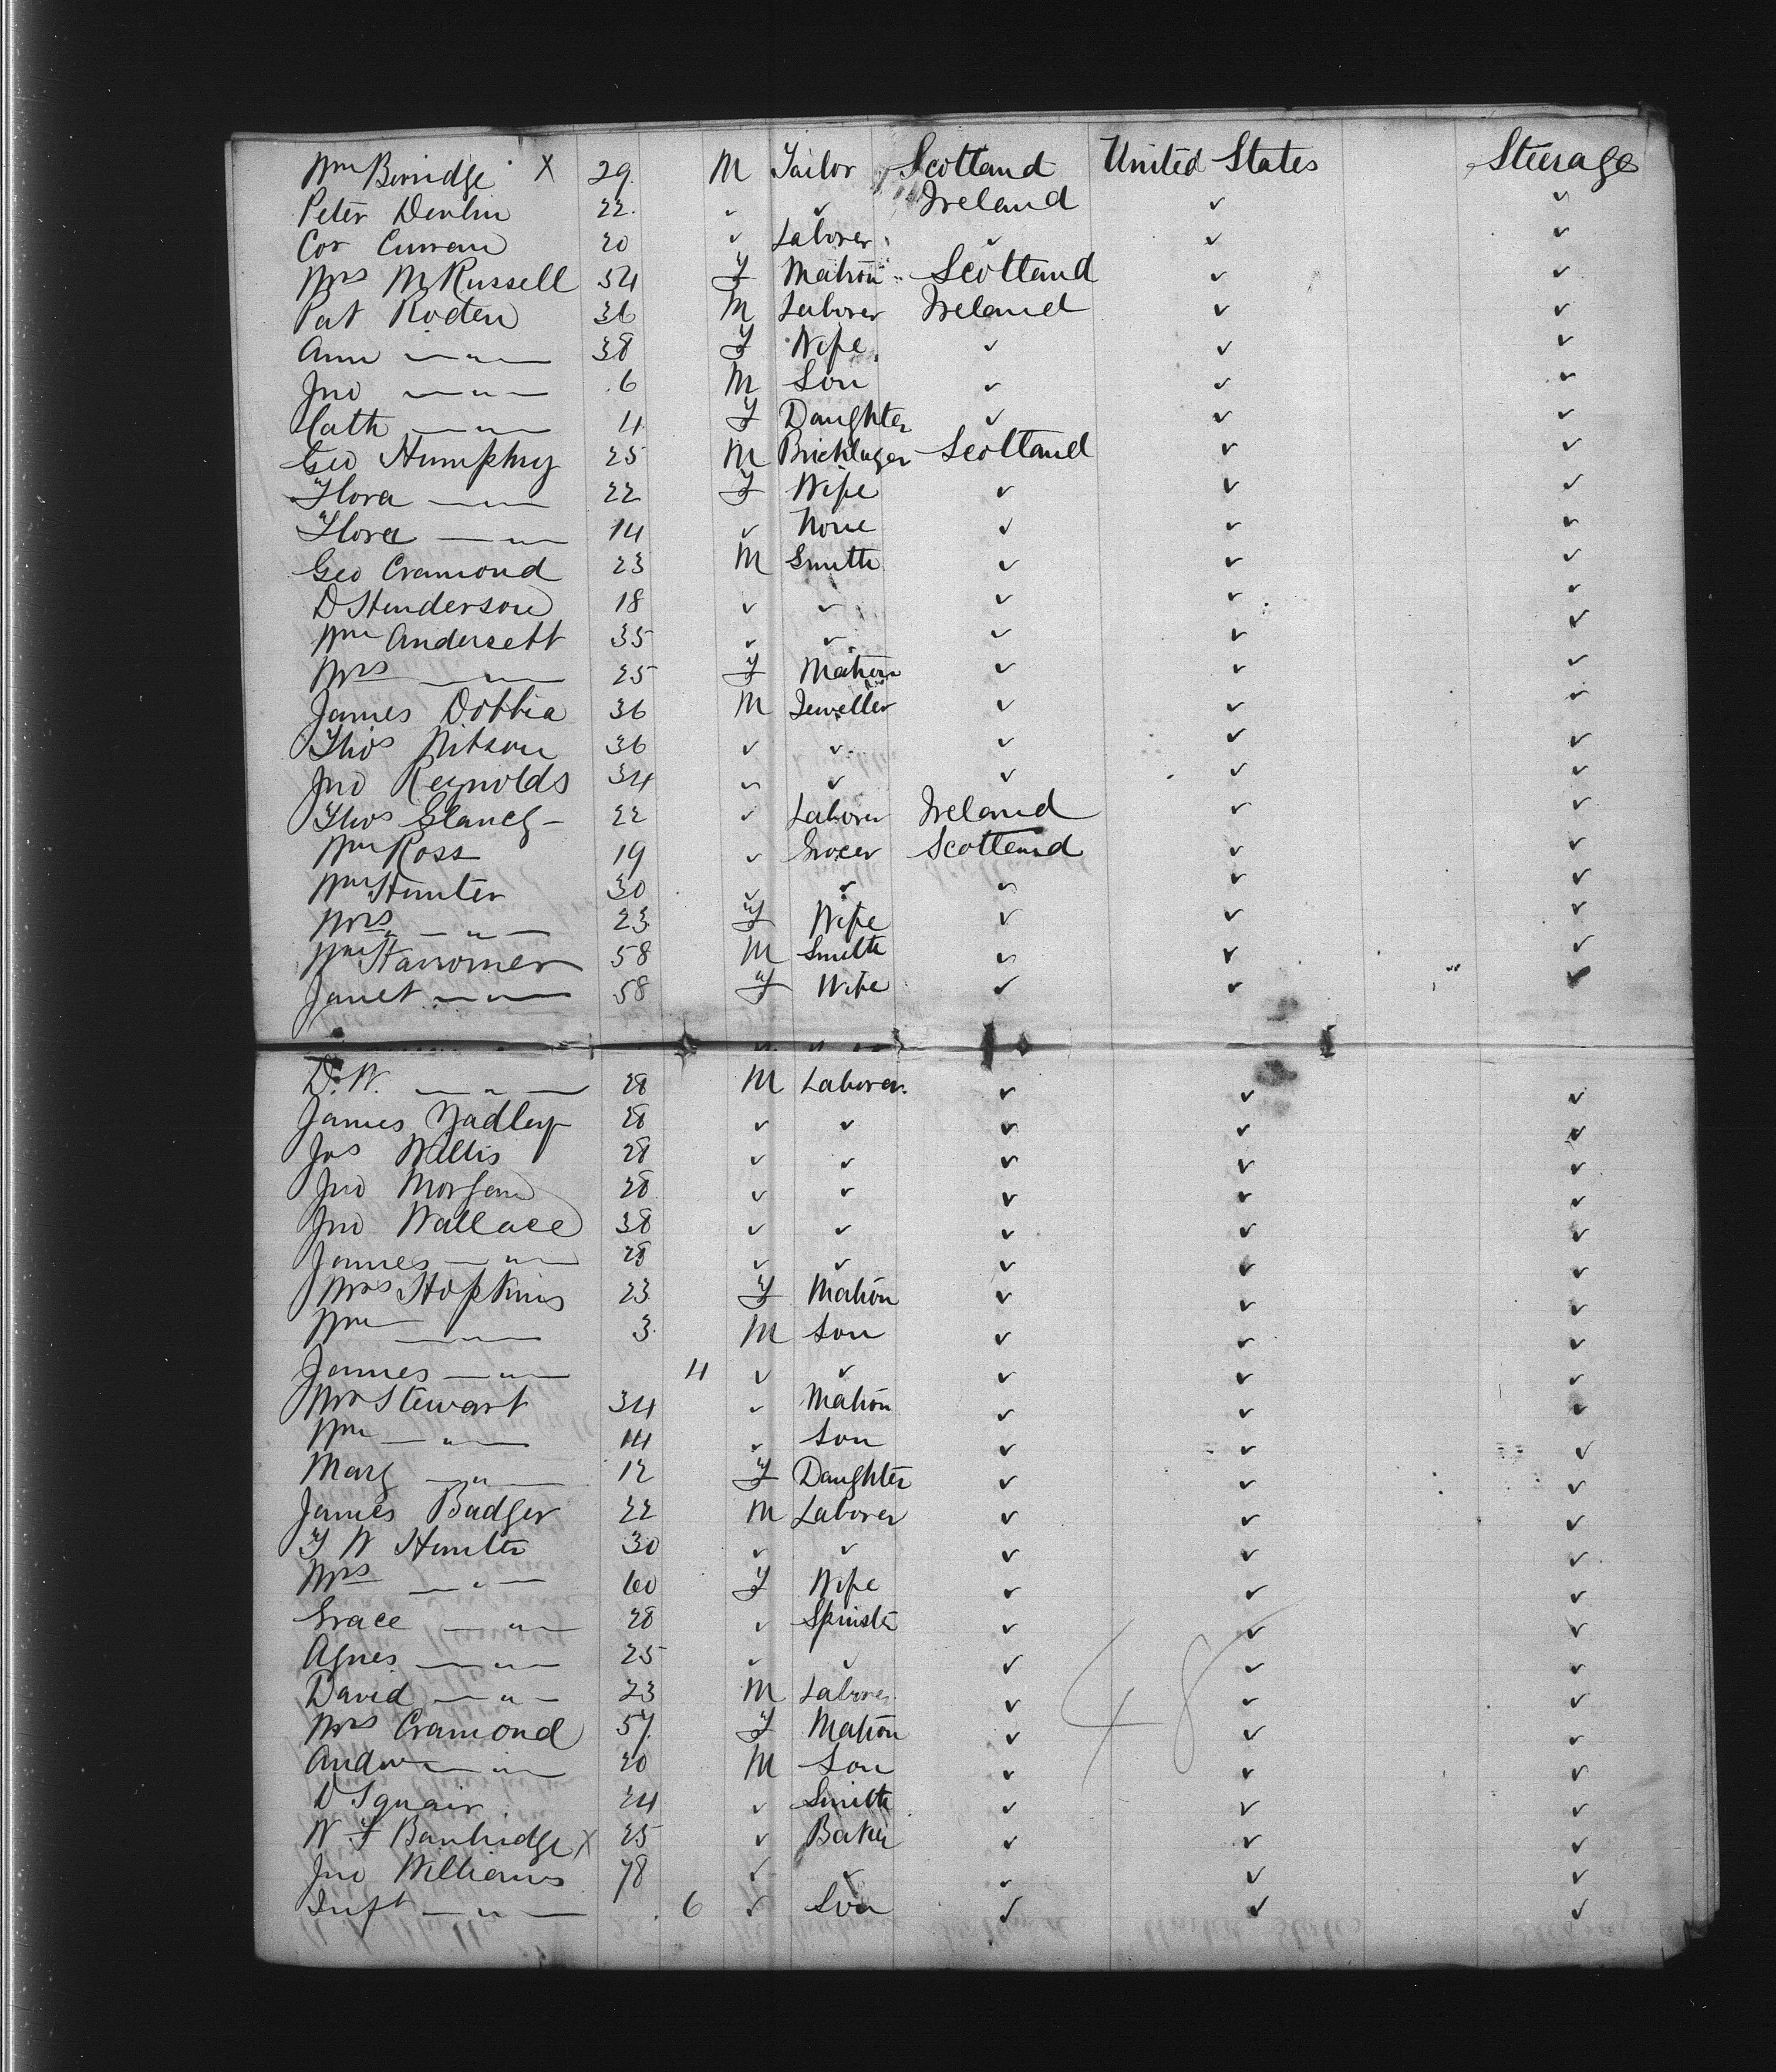 Wm Berridge X 29 M Tailor Scotland United States Steerage
Peter Devlin 22 ✓ ✓ Ireland ✓ ✓
Cor Curran 20 ✓ Laborer ✓ ✓ ✓
Mrs M Russell 54 F Matron Scotland ✓ ✓
Pat Roden 36 M Laborer Ireland ✓ ✓
Ann — " — 38 F Wife ✓ ✓ ✓
Jno — " — 6 M Son ✓ ✓ ✓
Cath — " — 4 F Daughter ✓ ✓ ✓
Geo Humphry 25 M Bricklayer Scotland ✓ ✓
Flora — " — 22 F Wife ✓ ✓ ✓
Flora — " — 14 ✓ None ✓ ✓ ✓
Geo Cramond 23 M Smith ✓ ✓ ✓
D Henderson 18 ✓ ✓ ✓ ✓ ✓
Wm 35 ✓ ✓ ✓ ✓ ✓
Mrs — " — 25 F Matron ✓ ✓ ✓
James Dobbia 36 M Jeweller ✓ ✓ ✓
Thos 36 ✓ ✓ ✓ ✓ ✓
Jno Reynolds 34 ✓ ✓ ✓ ✓ ✓
Thos Glancy 22 ✓ Laborer Ireland ✓ ✓
Wm Ross 19 ✓ Grocer Scotland ✓ ✓
Wm Hunter 30 ✓ ✓ ✓ ✓ ✓
Mrs — " — 23 F Wife ✓ ✓ ✓
Wm 58 M Smith ✓ ✓ ✓
Janet — " — 58 F Wife ✓ ✓ ✓
D. W. — " — 28 M Laborer ✓ ✓ ✓
James 28 ✓ ✓ ✓ ✓ ✓
Jas Willis 28 ✓ ✓ ✓ ✓ ✓
Jno Morgan 28 ✓ ✓ ✓ ✓ ✓
Jno Wallace 38 ✓ ✓ ✓ ✓ ✓
James — " — 28 ✓ ✓ ✓ ✓ ✓
Mrs Hopkins 23 F Matron ✓ ✓ ✓
Wm — " — 3 M Son ✓ ✓ ✓
James — " — 4 ✓ ✓ ✓ ✓ ✓
Mrs Stewart 34 ✓ Matron ✓ ✓ ✓
Wm — " — 14 ✓ Son ✓ ✓ ✓
Marg — " — 12 F Daughter ✓ ✓ ✓
James Badger 22 M Laborer ✓ ✓ ✓
F W Hunter 30 ✓ ✓ ✓ ✓ ✓
Mrs — " — 60 F Wife ✓ ✓ ✓
Grace — " — 28 ✓ Spinster ✓ ✓ ✓
Agnes — " — 25 ✓ ✓ ✓ ✓ ✓
David — " — 23 M Laborer ✓ ✓ ✓
Mrs Cramond 57 F Matron ✓ ✓ ✓
Andw — " — 20 M Son ✓ ✓ ✓
D Squair 24 ✓ Smith ✓ ✓ ✓
W F Banbridge X 25 ✓ Baker ✓ ✓ ✓
Jno Williams 78 ✓ ✓ ✓ ✓ ✓
Inft — " — 6 ✓ Son ✓ ✓ ✓
48